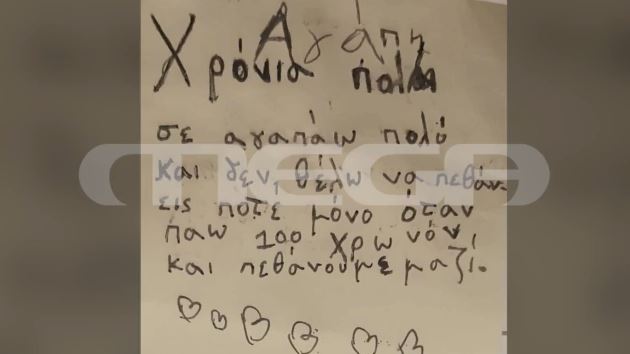 Αγάπη
Χρόνια πολλα
σε αγαπάω πολύ
και δεν, θέλω να πεθάν
εις ποτε μόνο όταν
παω 100 χρω νόν
και πεθάνουμε μαζί.
MEGA